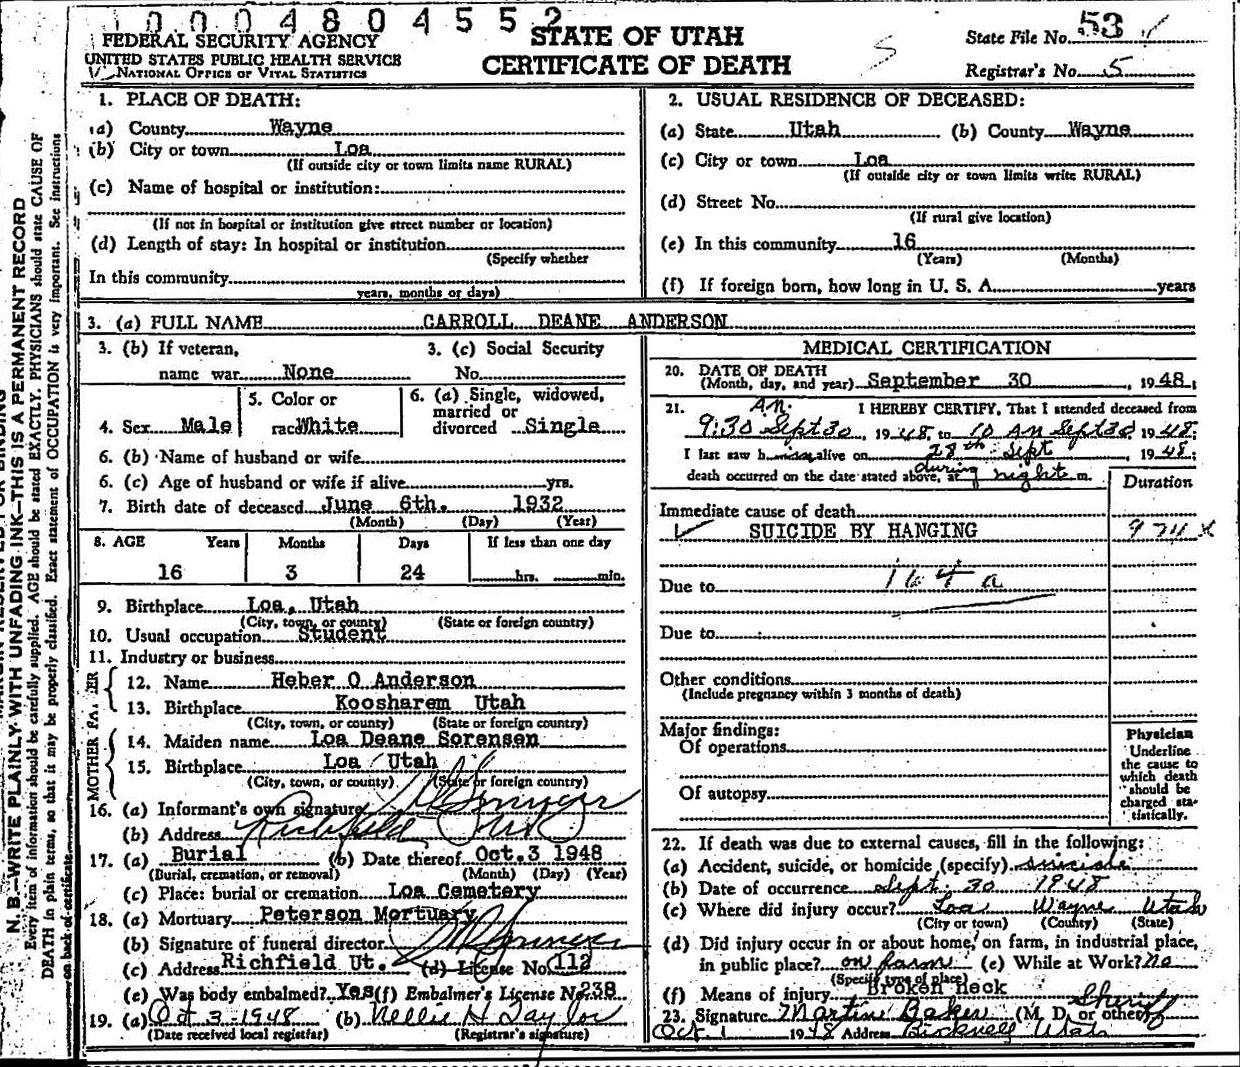 0004804552
FEDERAL SECURITY AGENCY
UNITED STATES PUBLIC HEALTH SERVICE
NATIONAL OFFICE OF VITAL STATISTICS
STATE OF UTAH
CERTIFICATE OF DEATH
State File No. 53
Registrar's No. 5
1. PLACE OF DEATH:
(a) County Wayne
(b) City or town Loa
(If outside city or town limits name RURAL)
(c) Name of hospital or institution:
(If not in hospital or institution give street number or location)
(d) Length of stay: In hospital or institution
(Specify whether
In this community
years, months or days)
2. USUAL RESIDENCE OF DECEASED:
(a) State Utah (b) County Wayne
(c) City or town Loa
(If outside city or town limits write RURAL)
(d) Street No.
(If rural give location)
(e) In this community 16
(Years) (Months)
(f) If foreign born, how long in U. S. A. years
3. (a) FULL NAME CARROLL DEANE ANDERSON
3. (b) If veteran, 3. (c) Social Security
name war None No.
4. Sex Male
5. Color or
race White
6. (a) Single, widowed,
married or
divorced Single
6. (b) Name of husband or wife
6. (c) Age of husband or wife if alive yrs.
7. Birth date of deceased June 6th. 1932
(Month) (Day) (Year)
8. AGE Years Months Days If less than one day
16 3 24 hrs. min.
9. Birthplace Loa, Utah
(City, town, or county) (State or foreign country)
10. Usual occupation Student
11. Industry or business
FATHER
12. Name Heber O Anderson
13. Birthplace Koosharem Utah
(City, town, or county) (State or foreign country)
MOTHER
14. Maiden name Loa Deane Sorensen
15. Birthplace Loa Utah
(City, town, or county) (State or foreign country)
16. (a) Informant's own signature
(b) Address Richfield Utah
17. (a) Burial (b) Date thereof Oct.3 1948
(Burial, cremation, or removal) (Month) (Day) (Year)
(c) Place: burial or cremation Loa Cemetery
18. (a) Mortuary Peterson Mortuary
(b) Signature of funeral director
(c) Address Richfield Ut. (d) License No. 112
(e) Was body embalmed? Yes (f) Embalmer's License No. 238
19. (a) Oct 3-1948 (b) Nellie H Taylor
(Date received local registrar) (Registrar's signature)
MEDICAL CERTIFICATION
20. DATE OF DEATH
(Month, day, and year) September 30, 1948
21. I HEREBY CERTIFY, That I attended deceased from
A.M.
9:30 Sept 30, 1948, to 10 AM Sept 30, 1948;
I last saw h alive on 28th Sept, 1948;
death occurred on the date stated above, at during night m.
Duration
Immediate cause of death
SUICIDE BY HANGING 974x
Due to 164a
Due to
Other conditions
(Include pregnancy within 3 months of death)
Major findings:
Of operations
Of autopsy
Physician
Underline
the cause to
which death
should be
charged sta-
tistically.
22. If death was due to external causes, fill in the following:
(a) Accident, suicide, or homicide (specify) suicide
(b) Date of occurrence Sept. 30 1948
(c) Where did injury occur? Loa Wayne Utah
(City or town) (County) (State)
(d) Did injury occur in or about home, on farm, in industrial place,
in public place? on farm (e) While at Work? No
(Specify type of place)
(f) Means of injury Broken Neck
23. Signature Martin Baker (M. D. or other) Sheriff
Oct. 1 1948 Address Bicknell Utah
N. B.—WRITE PLAINLY WITH UNFADING INK—THIS IS A PERMANENT RECORD
Every item of information should be carefully supplied. AGE should be stated EXACTLY. PHYSICIANS should state CAUSE OF
DEATH in plain terms, so that it may be properly classified. Exact statement of OCCUPATION is very important. See instructions
on back of certificate.